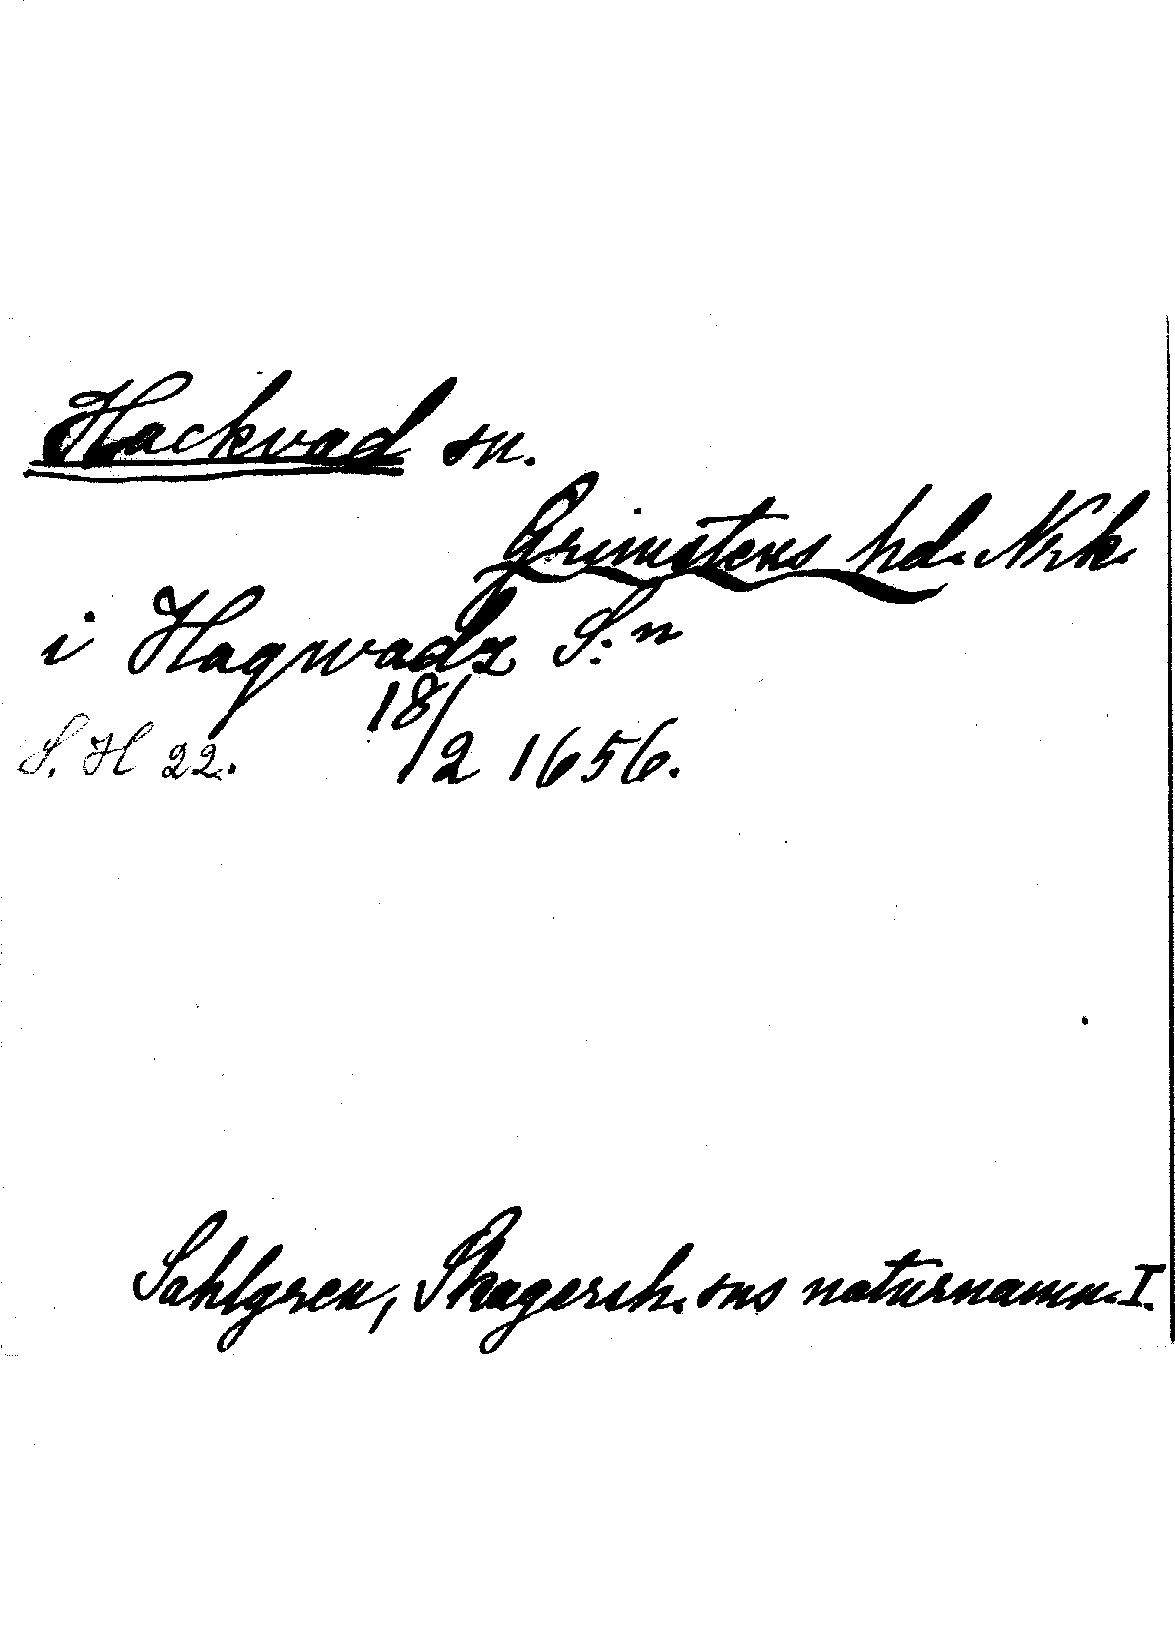 Hackvad sn.
Grimstens hd. Nrk.
i Hagwadz S:n
S. H 22. 18/2 1656.
Sahlgren, Skagersh. sns naturnamn. I.